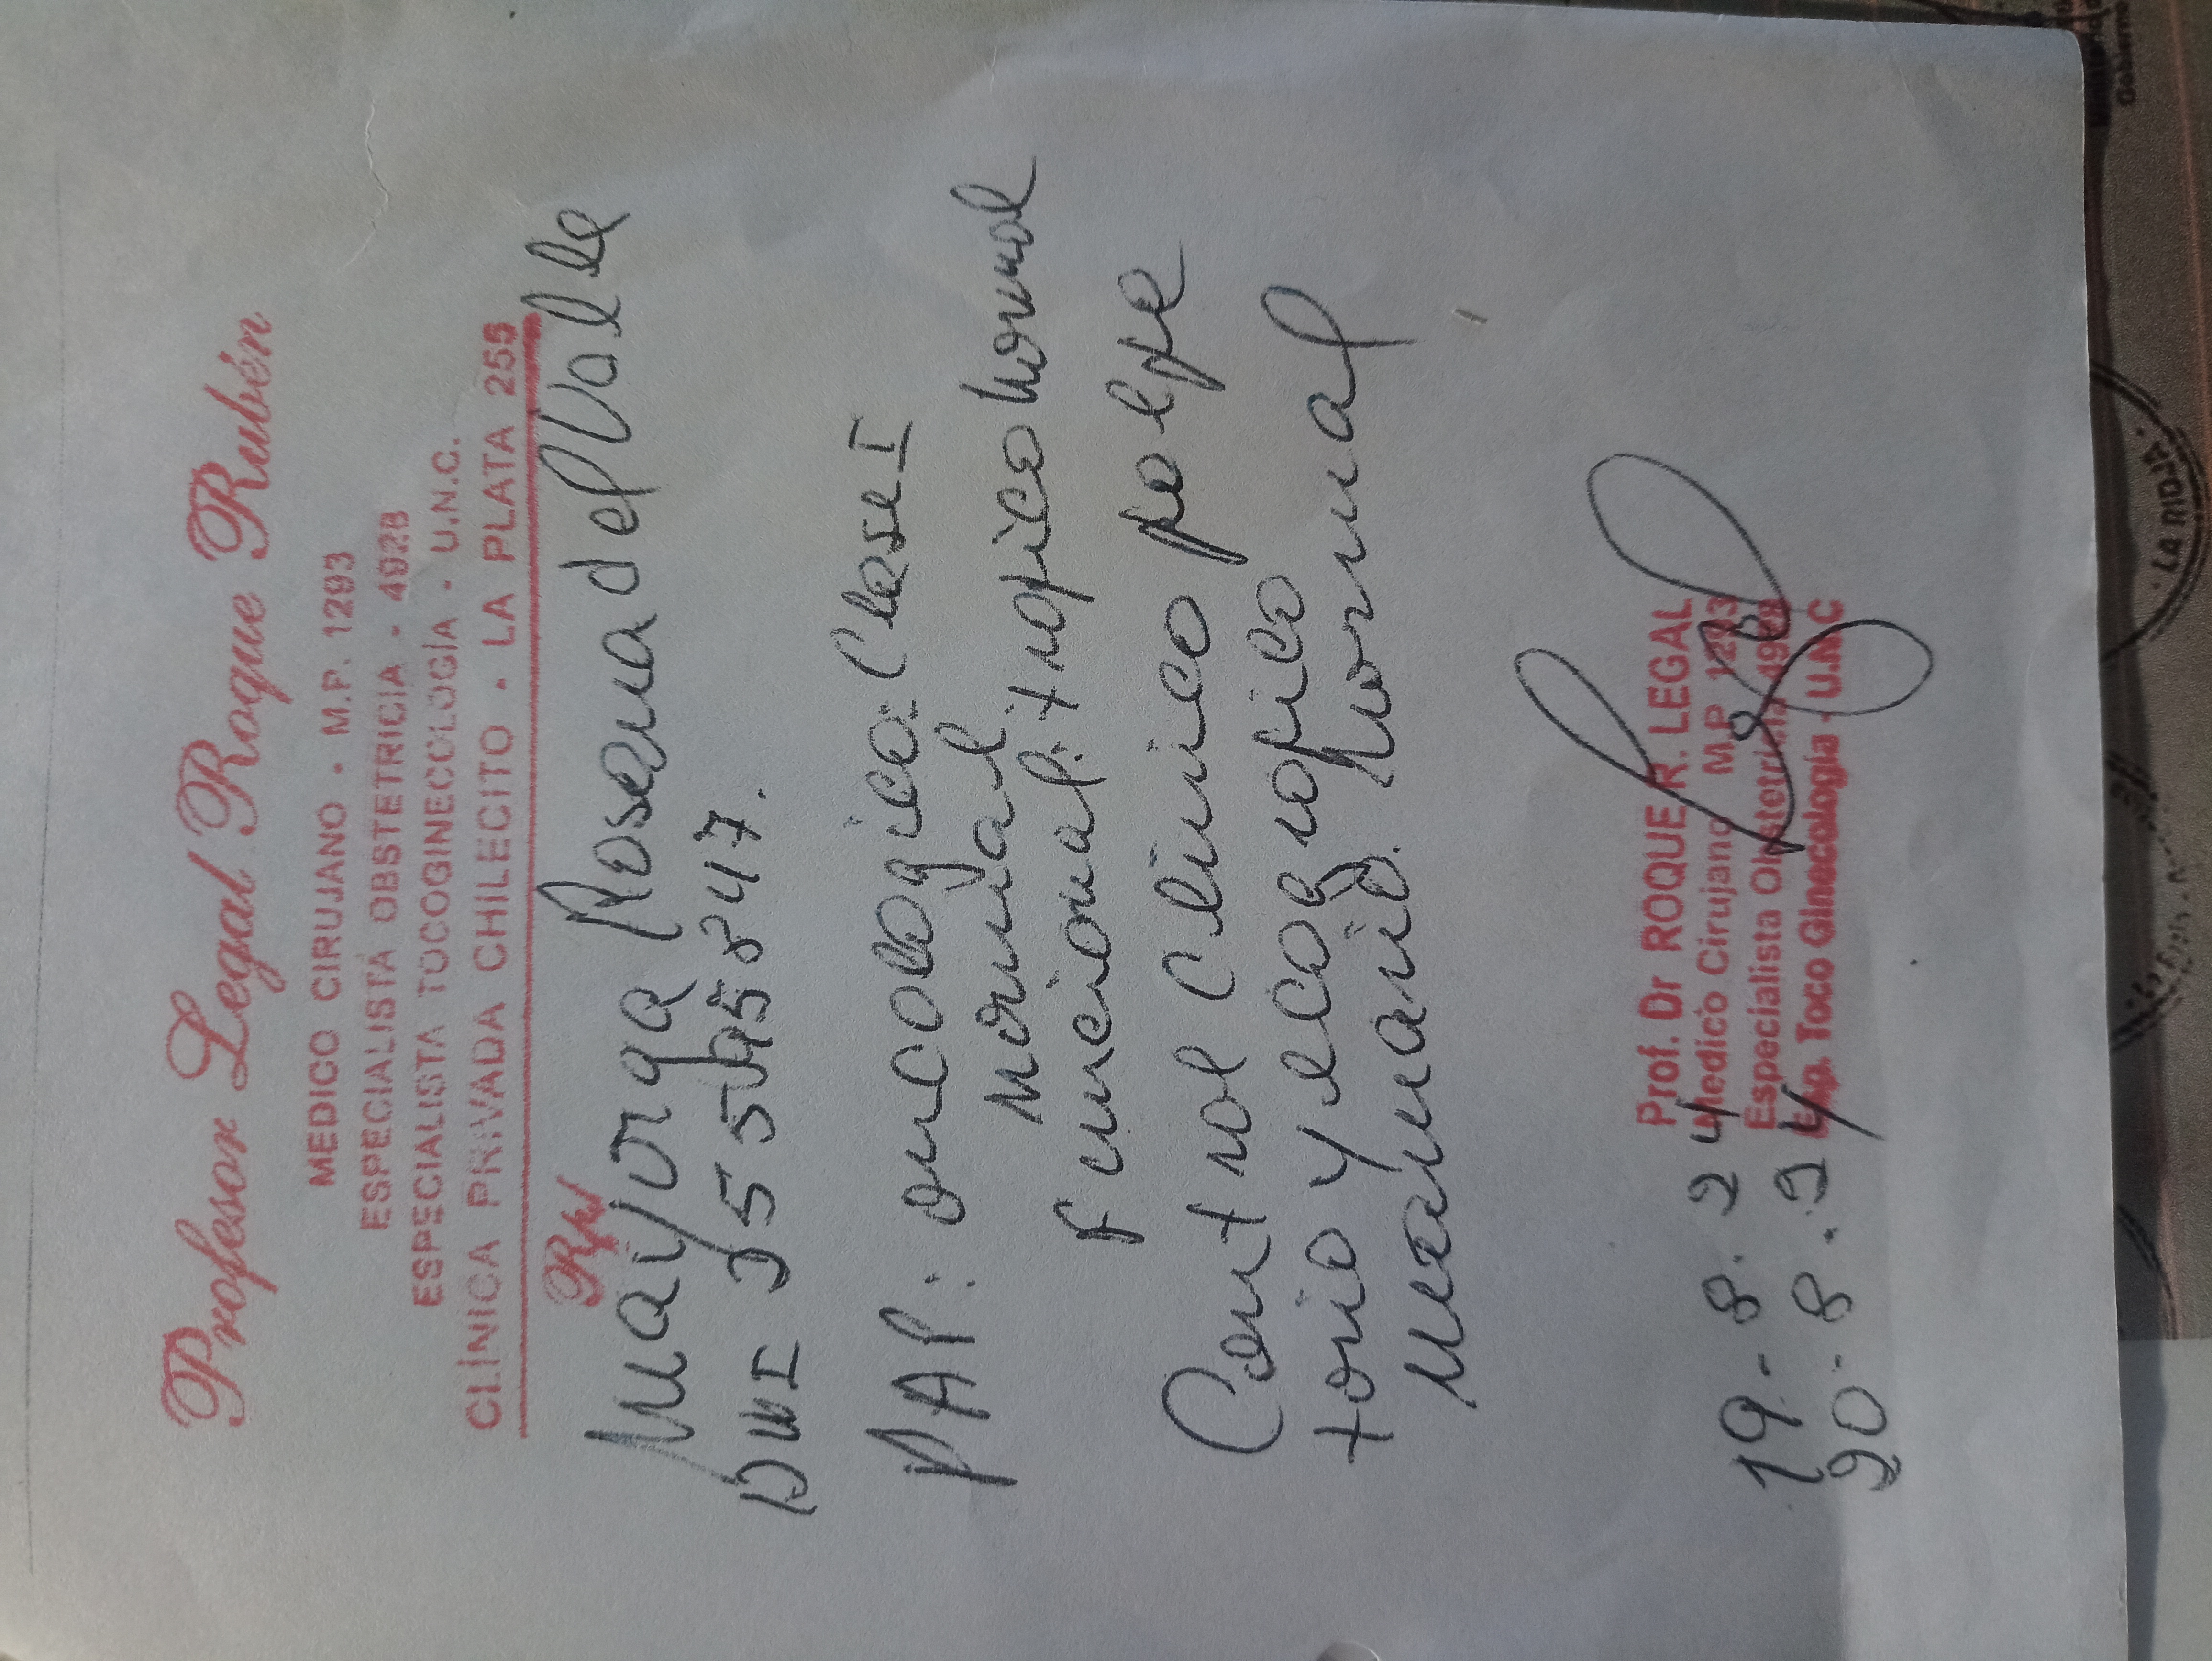 Profesor Legal Roque Rubén
MEDICO CIRUJANO - M.P. 1293
ESPECIALISTA OBSTETRICIA - 4928
ESPECIALISTA TOCOGINECOLOGÍA - U.N.C.
CLÍNICA PRIVADA CHILECITO - LA PLATA 255
Rp/
Mayorga Rosana del Valle
DNI
PAP: oncologico: Clase I
Normal
funcional: trofico normal
Control clinico palpa
torio y ecografico
mamario. Normal
Prof. Dr ROQUE R. LEGAL
Medico Cirujano M.P. 1293
Especialista Obstetricia 4928
Esp. Toco Ginecología - U.N.C
19-8-24
20-8-24
LA RIOJA